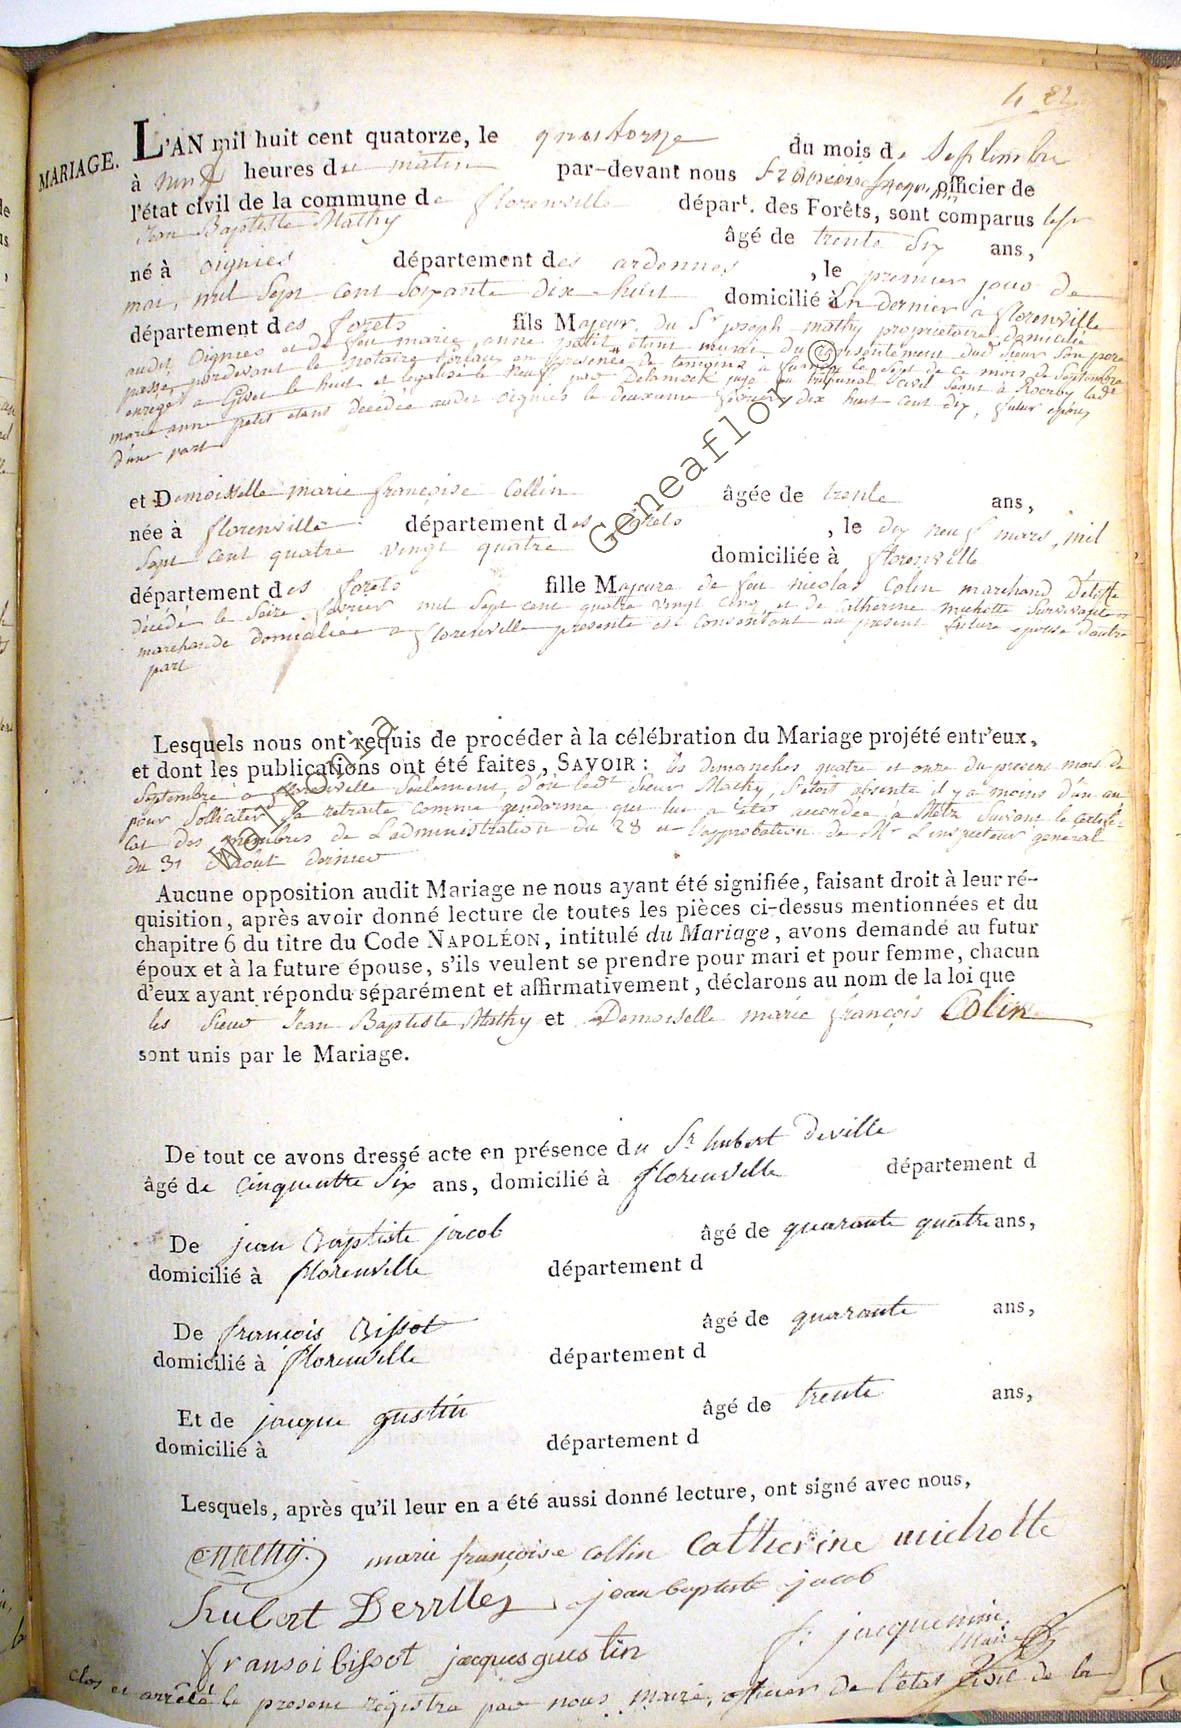 MARIAGE.
L'AN mil huit cent quatorze, le quatorze du mois de Septembre
à neuf heures du matin par-devant nous François Jacquemin officier de
l'état civil de la commune de florenville dépar<sup>t</sup>. des Forêts, sont comparus le s<sup>r</sup>
Jean Baptiste Mathy âgé de trente six ans,
né à oignies département des ardennes, le premier jour de
mai, mil sept cent soixante dix huit domicilié à florenville
département des forets fils Majeur du S<sup>r</sup> joseph mathy proprietaire domicilié
audit Oignies et de feu marie anne petit étant muni du consentement dud<sup>t</sup> sieur son pere
passé pardevant le notaire en presence de temoins à fumay le sept de ce mois de Septembre
enregé a Givet le huit et legalisé le neuf par Delamock juge au tribunal civil séant à Rocroy lad<sup>te</sup>
marie anne petit étant décédée audit oignies le deuxieme fevrier dix huit cent dix, futur epoux
d'une part
et Demoiselle marie françoise Collin âgée de trente ans,
née à florenville département des forets, le dix neuf mars, mil
sept cent quatre vingt quatre domiciliée à florenville
département des forets fille Majeure de feu nicolas Colin marchand
décédé le seize fevrier mil sept cent quatre vingt cinq, et de Catherine michotte survivante
marchande domiciliée a florenville presente et consentant au present future epouse d'autre
part
Lesquels nous ont requis de procéder à la célébration du Mariage projété entr'eux,
et dont les publications ont été faites, SAVOIR : les dimanches quatre et onze du present mois de
Septembre a florenville seulement, d'où led<sup>t</sup> sieur Mathy, s'étoit absenté il y a moins d'un an
pour solliciter sa retraite comme gendarme qui lui a été accordée à Metz suivant le certifi-
cat des membres de L'administration du 28 et l'approbation de M<sup>r</sup> L'inspecteur général
du 31 aout dernier
Aucune opposition audit Mariage ne nous ayant été signifiée, faisant droit à leur ré-
quisition, après avoir donné lecture de toutes les pièces ci-dessus mentionnées et du
chapitre 6 du titre du Code NAPOLÉON, intitulé du Mariage, avons demandé au futur
époux et à la future épouse, s'ils veulent se prendre pour mari et pour femme, chacun
d'eux ayant répondu séparément et affirmativement, déclarons au nom de la loi que
les Sieur Jean Baptiste Mathy et Demoiselle marie françois Colin
sont unis par le Mariage.
De tout ce avons dressé acte en présence du S<sup>r</sup> hubert Deville
âgé de cinquante six ans, domicilié à florenville département d
De jean Baptiste jacob âgé de quarante quatre ans,
domicilié à florenville département d
De françois Bissot âgé de quarante ans,
domicilié à florenville département d
Et de jacque gustin âgé de trente ans,
domicilié à département d
Lesquels, après qu'il leur en a été aussi donné lecture, ont signé avec nous,
Mathy. marie françoise collin Catherine michotte
hubert jean baptiste jacob
fransoi bissot jacques gustin f: jacquemin
Maire
Clos et arrêté le present registre par nous maire, officier de l'état civil de la
Wolfcarla Geneaflor ©